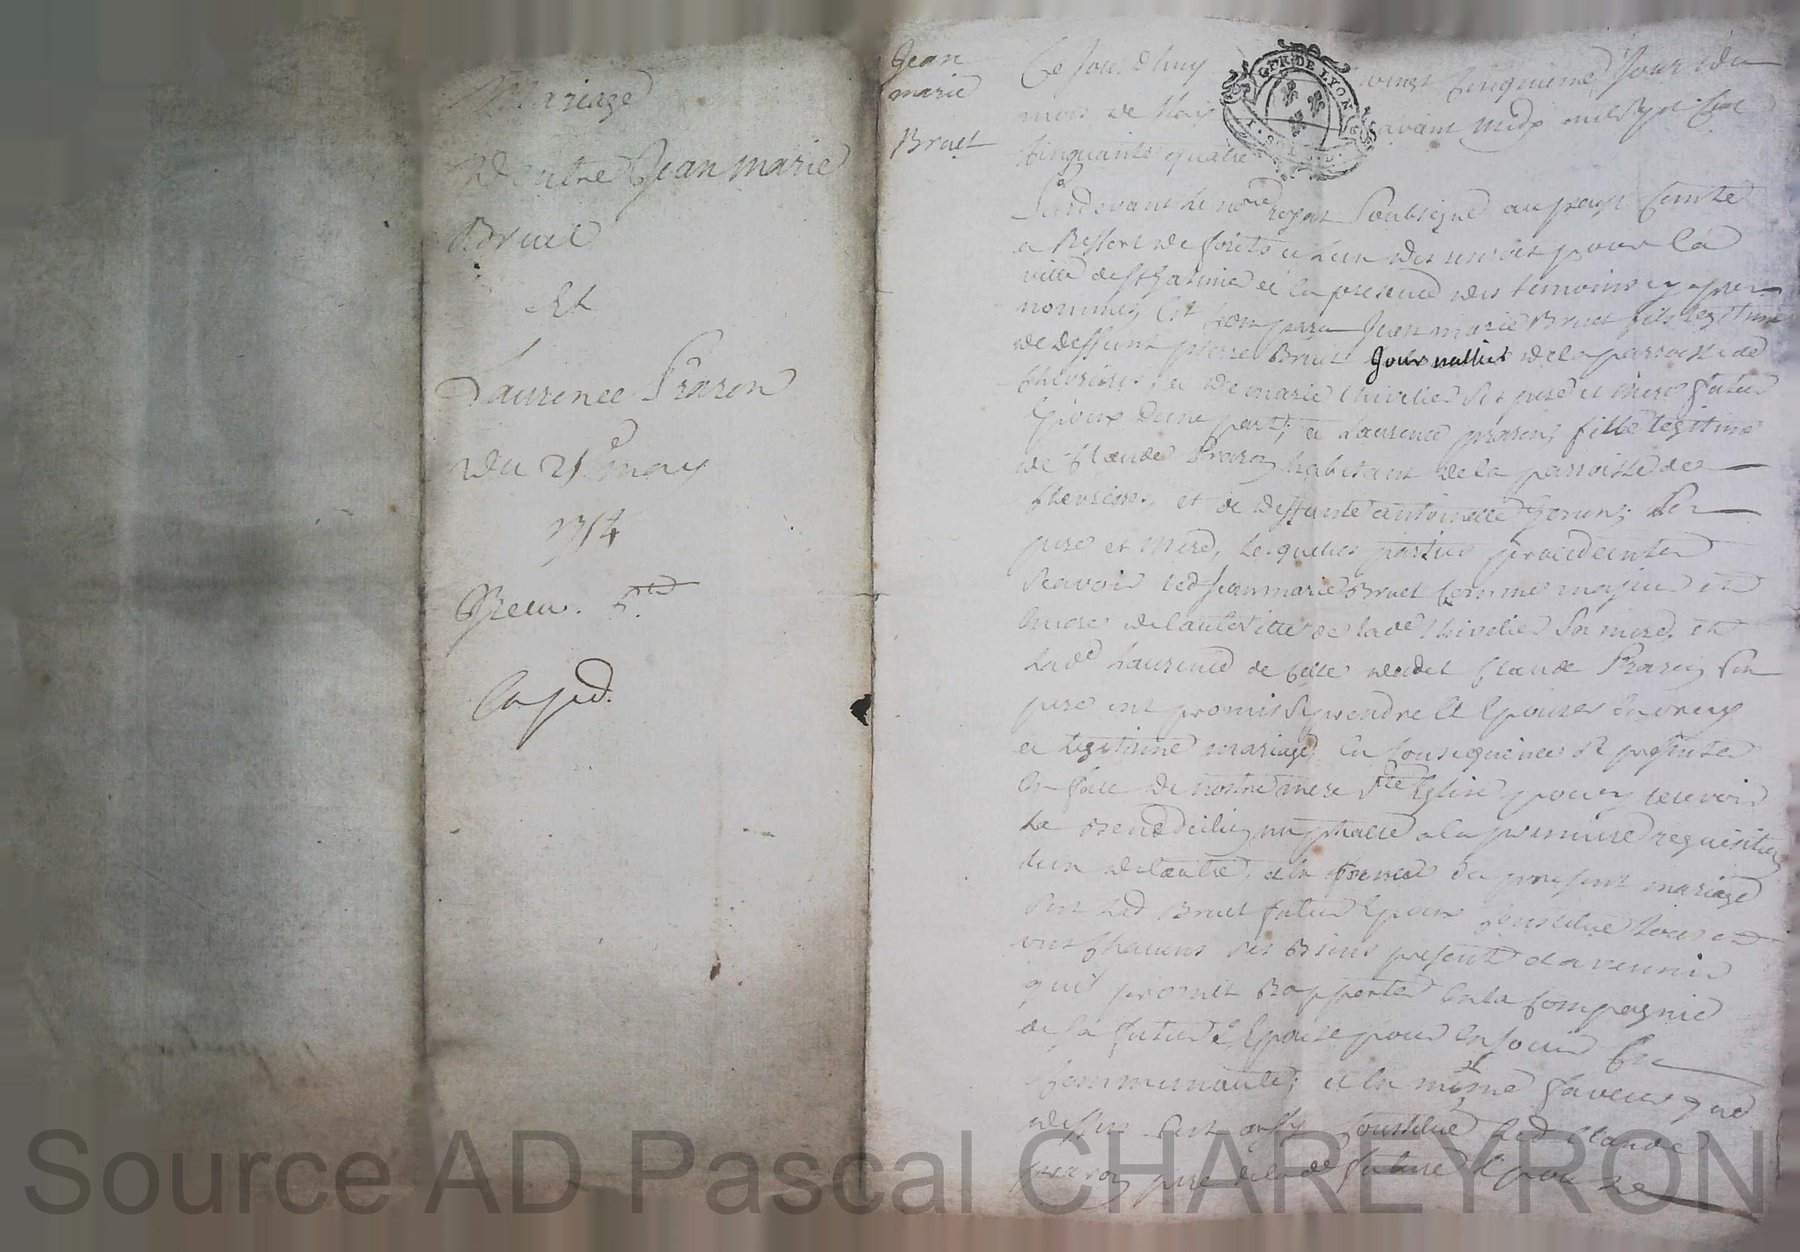 Mariage
D'entre Jean marie
Bruel
Et
Laurence Praron
Du 25e may
1754
Jean
marie
Bruet
Ce Jourdhuy vingt Cinquieme Jour du
mois de May avant midy mil Sept Cent
Cinquante quatre
GEN. DE LYON
Pardevant le nore royal Soubsigné au pays Comté
et Ressort de forets et l'un des reservés pour la
ville de St Galmier et en presence des temoins cy apres
nommés Est comparu Jean marie Bruet fils legitime
de deffunt pierre Bruet Journallier de la parroisse de
Chevrieres, et de marie Chivelier Ses pere et mere futur
Epoux d'une part; et Laurence praron, fille legitime
de Claude Praron habitant de la parroisse de
Chevrieres, et de deffunte antoinette Ses
pere et mere, Lesquelles parties procedantes
Scavoir led Jean marie Bruet Comme majeur et
Encore de l'autoritté de lade Chivelier Sa mere, et
Lade Laurence de Celle dudit Claude Praron Son
pere ont promis Se prendre et Epouser En vray
et legitime mariage, En Consequence Se presenter
En face de nostre mere Ste Eglise pour y recevoir
La Benediction nuptialle a la premiere requisition
L'un de l'autre, et en faveur du present mariage
S'est Led Bruet futur Epoux Constitué tous et
uns Chacuns Ses Biens presents et a venir
qu'il promet Rapporter En la Compagnie
de sa future Epouse pour En jouir En
Communauté; et en même faveur que
dessus S'est Constitué Led Claude
praron pere de lade future Epouse
Source AD Pascal CHAREYRON